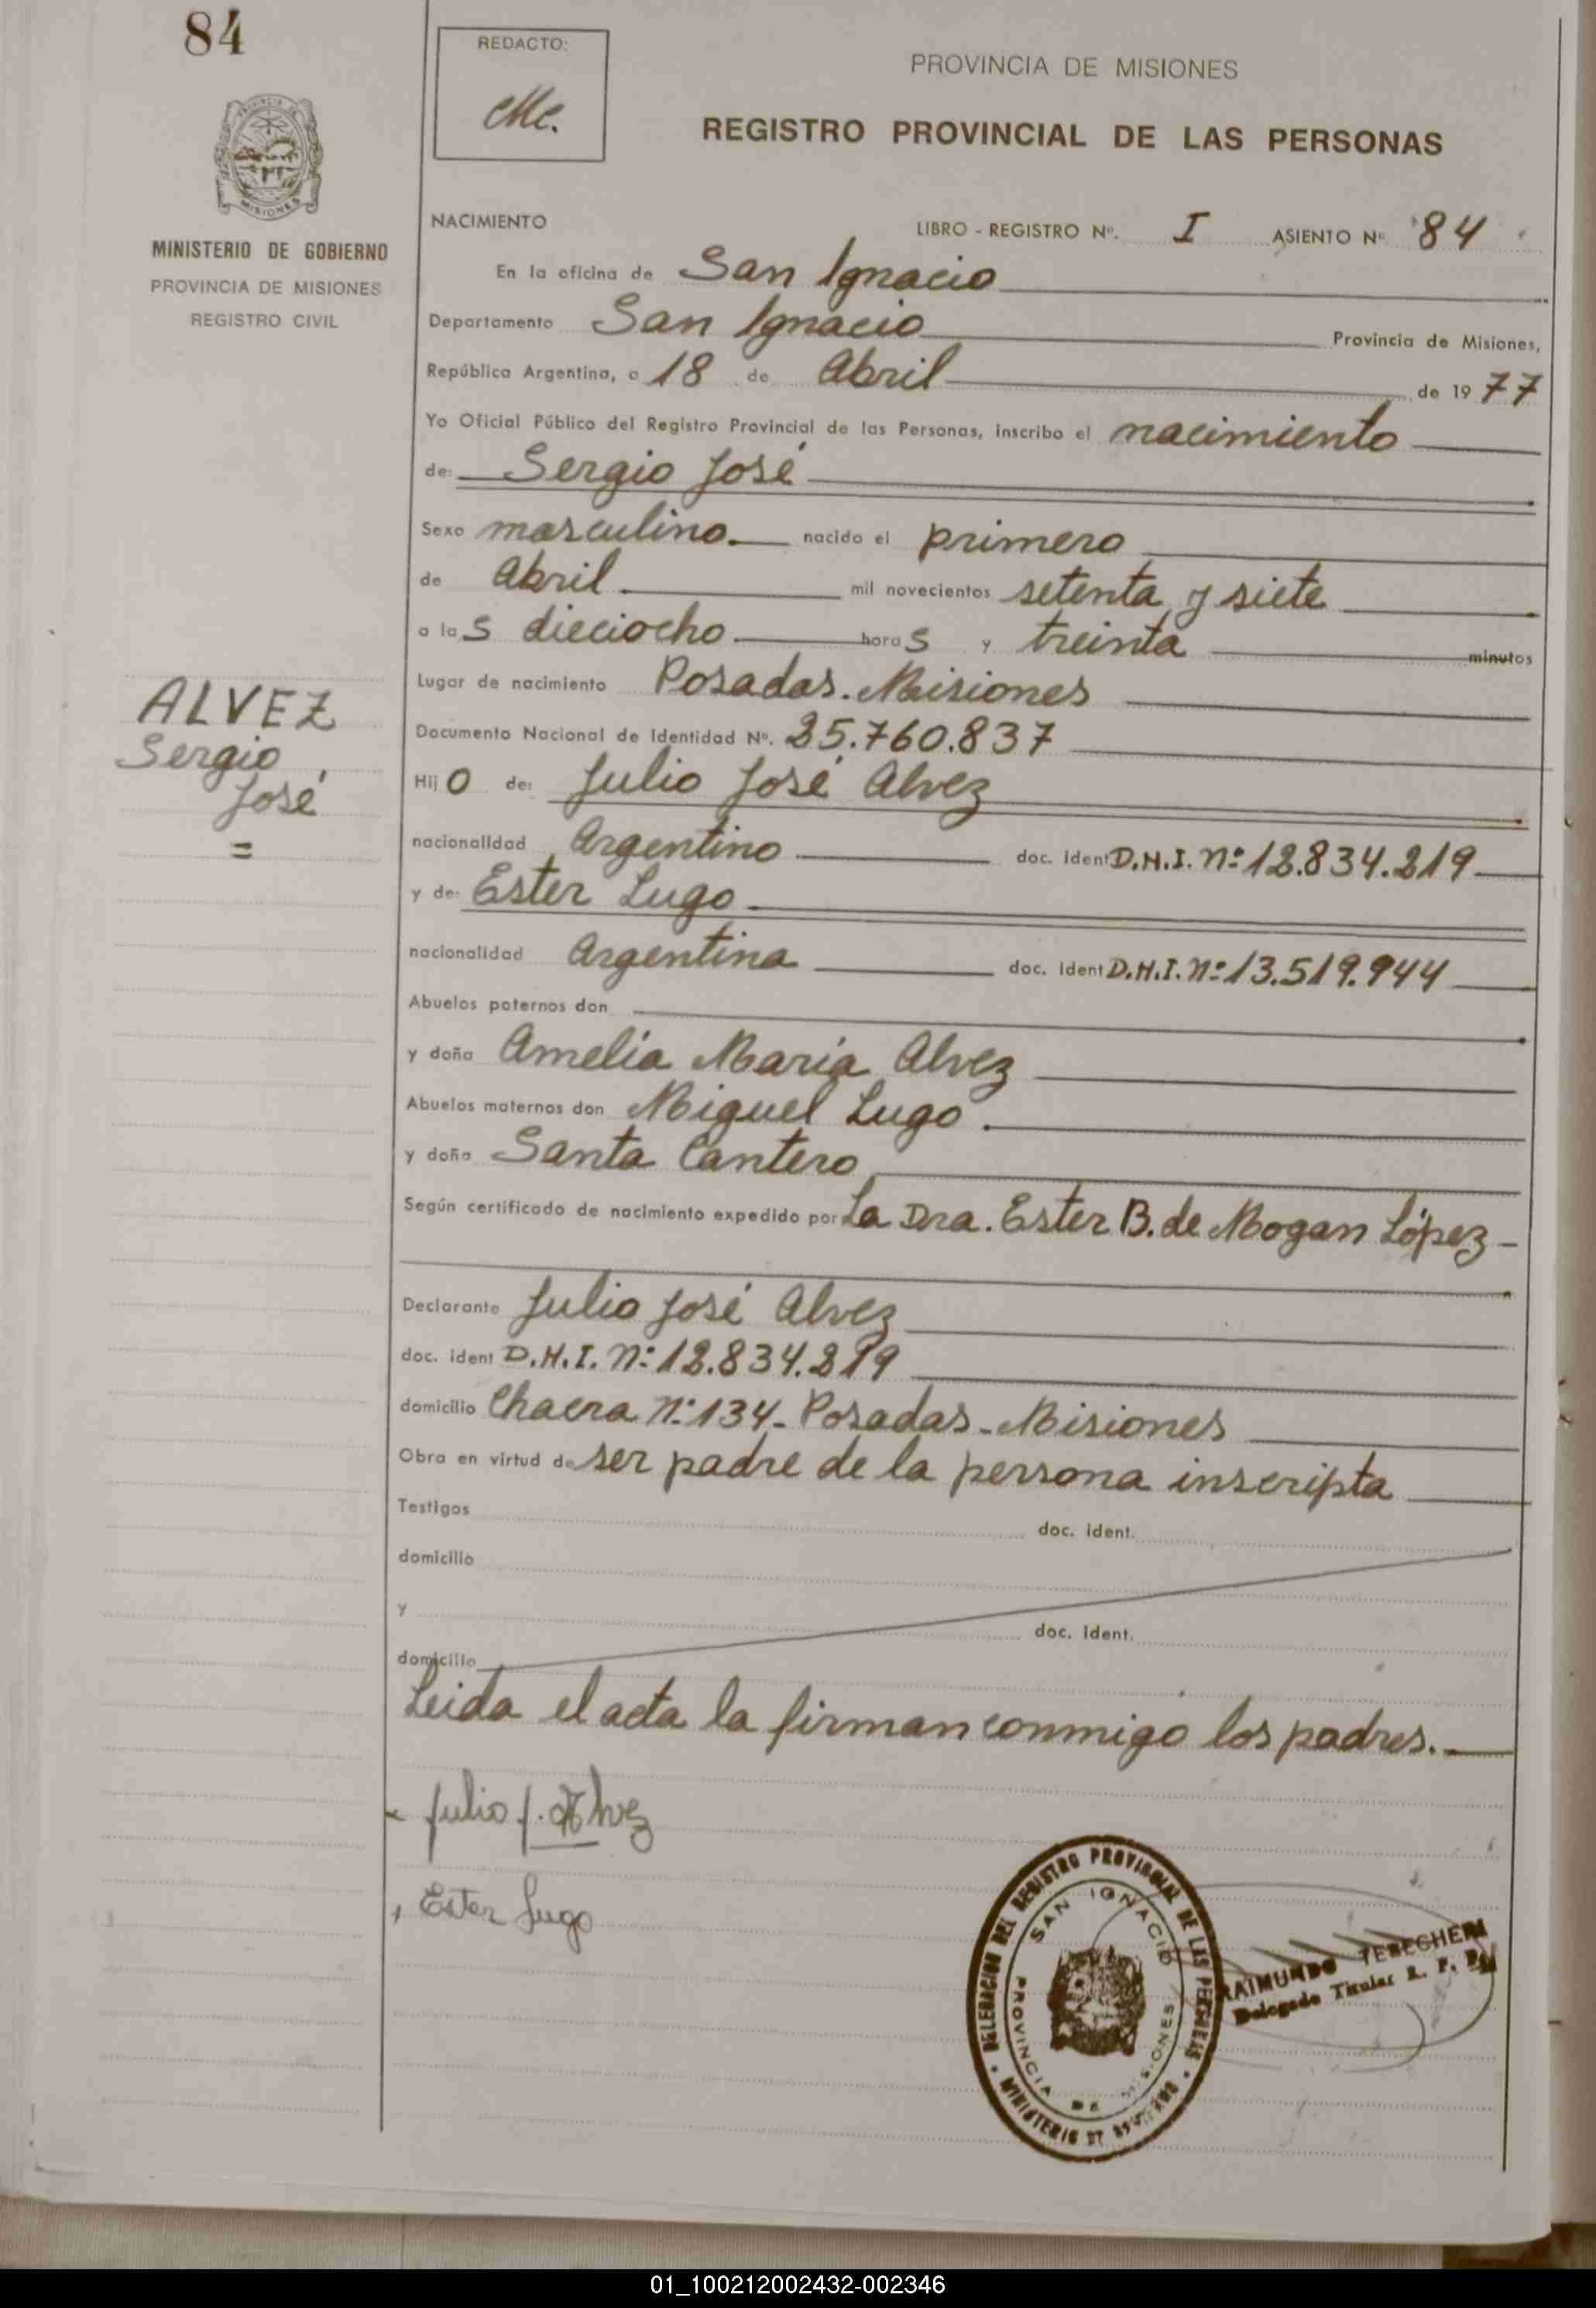 84
REDACTO:
PROVINCIA DE MISIONES
REGISTRO PROVINCIAL DE LAS PERSONAS
MISIONES
MINISTERIO DE GOBIERNO
PROVINCIA DE MISIONES
REGISTRO CIVIL
NACIMIENTO LIBRO - REGISTRO Nº. I ASIENTO Nº 84
En la oficina de San Ignacio
Departamento San Ignacio Provincia de Misiones,
República Argentina, a 18 de Abril de 1977
Yo Oficial Público del Registro Provincial de las Personas, inscribo el nacimiento
de: Sergio José
Sexo masculino. nacido el primero
de Abril mil novecientos setenta y siete
a las dieciocho horas y treinta minutos
Lugar de nacimiento Posadas. Misiones
ALVEZ
Sergio
José
=
Documento Nacional de Identidad Nº. 25.760.837
Hijo de: Julio José Alvez
nacionalidad Argentino doc. ident D.N.I. Nº 12.834.219
y de: Ester Lugo
nacionalidad Argentina doc. ident D.N.I. Nº 13.519.944
Abuelos paternos don
y doña Amelia María Alvez
Abuelos maternos don Miguel Lugo.
y doña Santa Cantero
Según certificado de nacimiento expedido por La Dra. Ester B. de Mogan López
Declarante Julio José Alvez
doc. ident D.N.I. Nº 12.834.219
domicilio Chacra Nº 134 - Posadas - Misiones
Obra en virtud de ser padre de la persona inscripta
Testigos doc. ident.
domicilio
y doc. ident.
domicilio
Leida el acta la firman conmigo los padres.
Julio J. Alvez
Ester Lugo
DELEGACION DEL REGISTRO PROVINCIAL DE LAS PERSONAS
MINISTERIO DE GOBIERNO
SAN IGNACIO
PROVINCIA DE MISIONES
RAIMUNDO
Delegado Titular R. P. P.
01_100212002432-002346